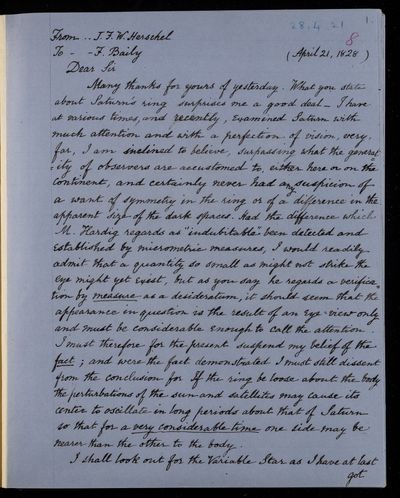 28.4.21
1.
8
From .. J.F.W. Herschel
To - - F. Baily
(April 21, 1828)
Dear Sir
Many thanks for yours of yesterday. What you state
about Saturn's ring surprises me a good deal - I have
at various times, and recently, examined Saturn with
much attention and with a perfection of vision, very,
far, I am inclined to believe, surpassing what the general-
:ity of observers are accustomed to, either here or on the
Continent, and certainly never had any suspicion of
a want of symmetry in the ring or of a difference in the
apparent size of the dark spaces. Had the difference which
M. Hardig regards as "indubitable" been detected and
established by micrometric measures, I would readily
admit that a quantity so small as might not strike the
eye might yet exist, but as you say he regards a verifica=
tion by measure as a desideratum, it should seem that the
appearance in question is the result of an eye-view only
and must be considerable enough to call the attention.
I must therefore for the present suspend my belief of the
fact; and were the fact demonstrated I must still dissent
from the conclusion for If the ring be loose about the body
the perturbations of the sun and satellites may cause its
centre to oscillate in long periods about that of Saturn
so that for a very considerable time one side may be
nearer than the other to the body.
I shall look out for the Variable Star as I have at last
got